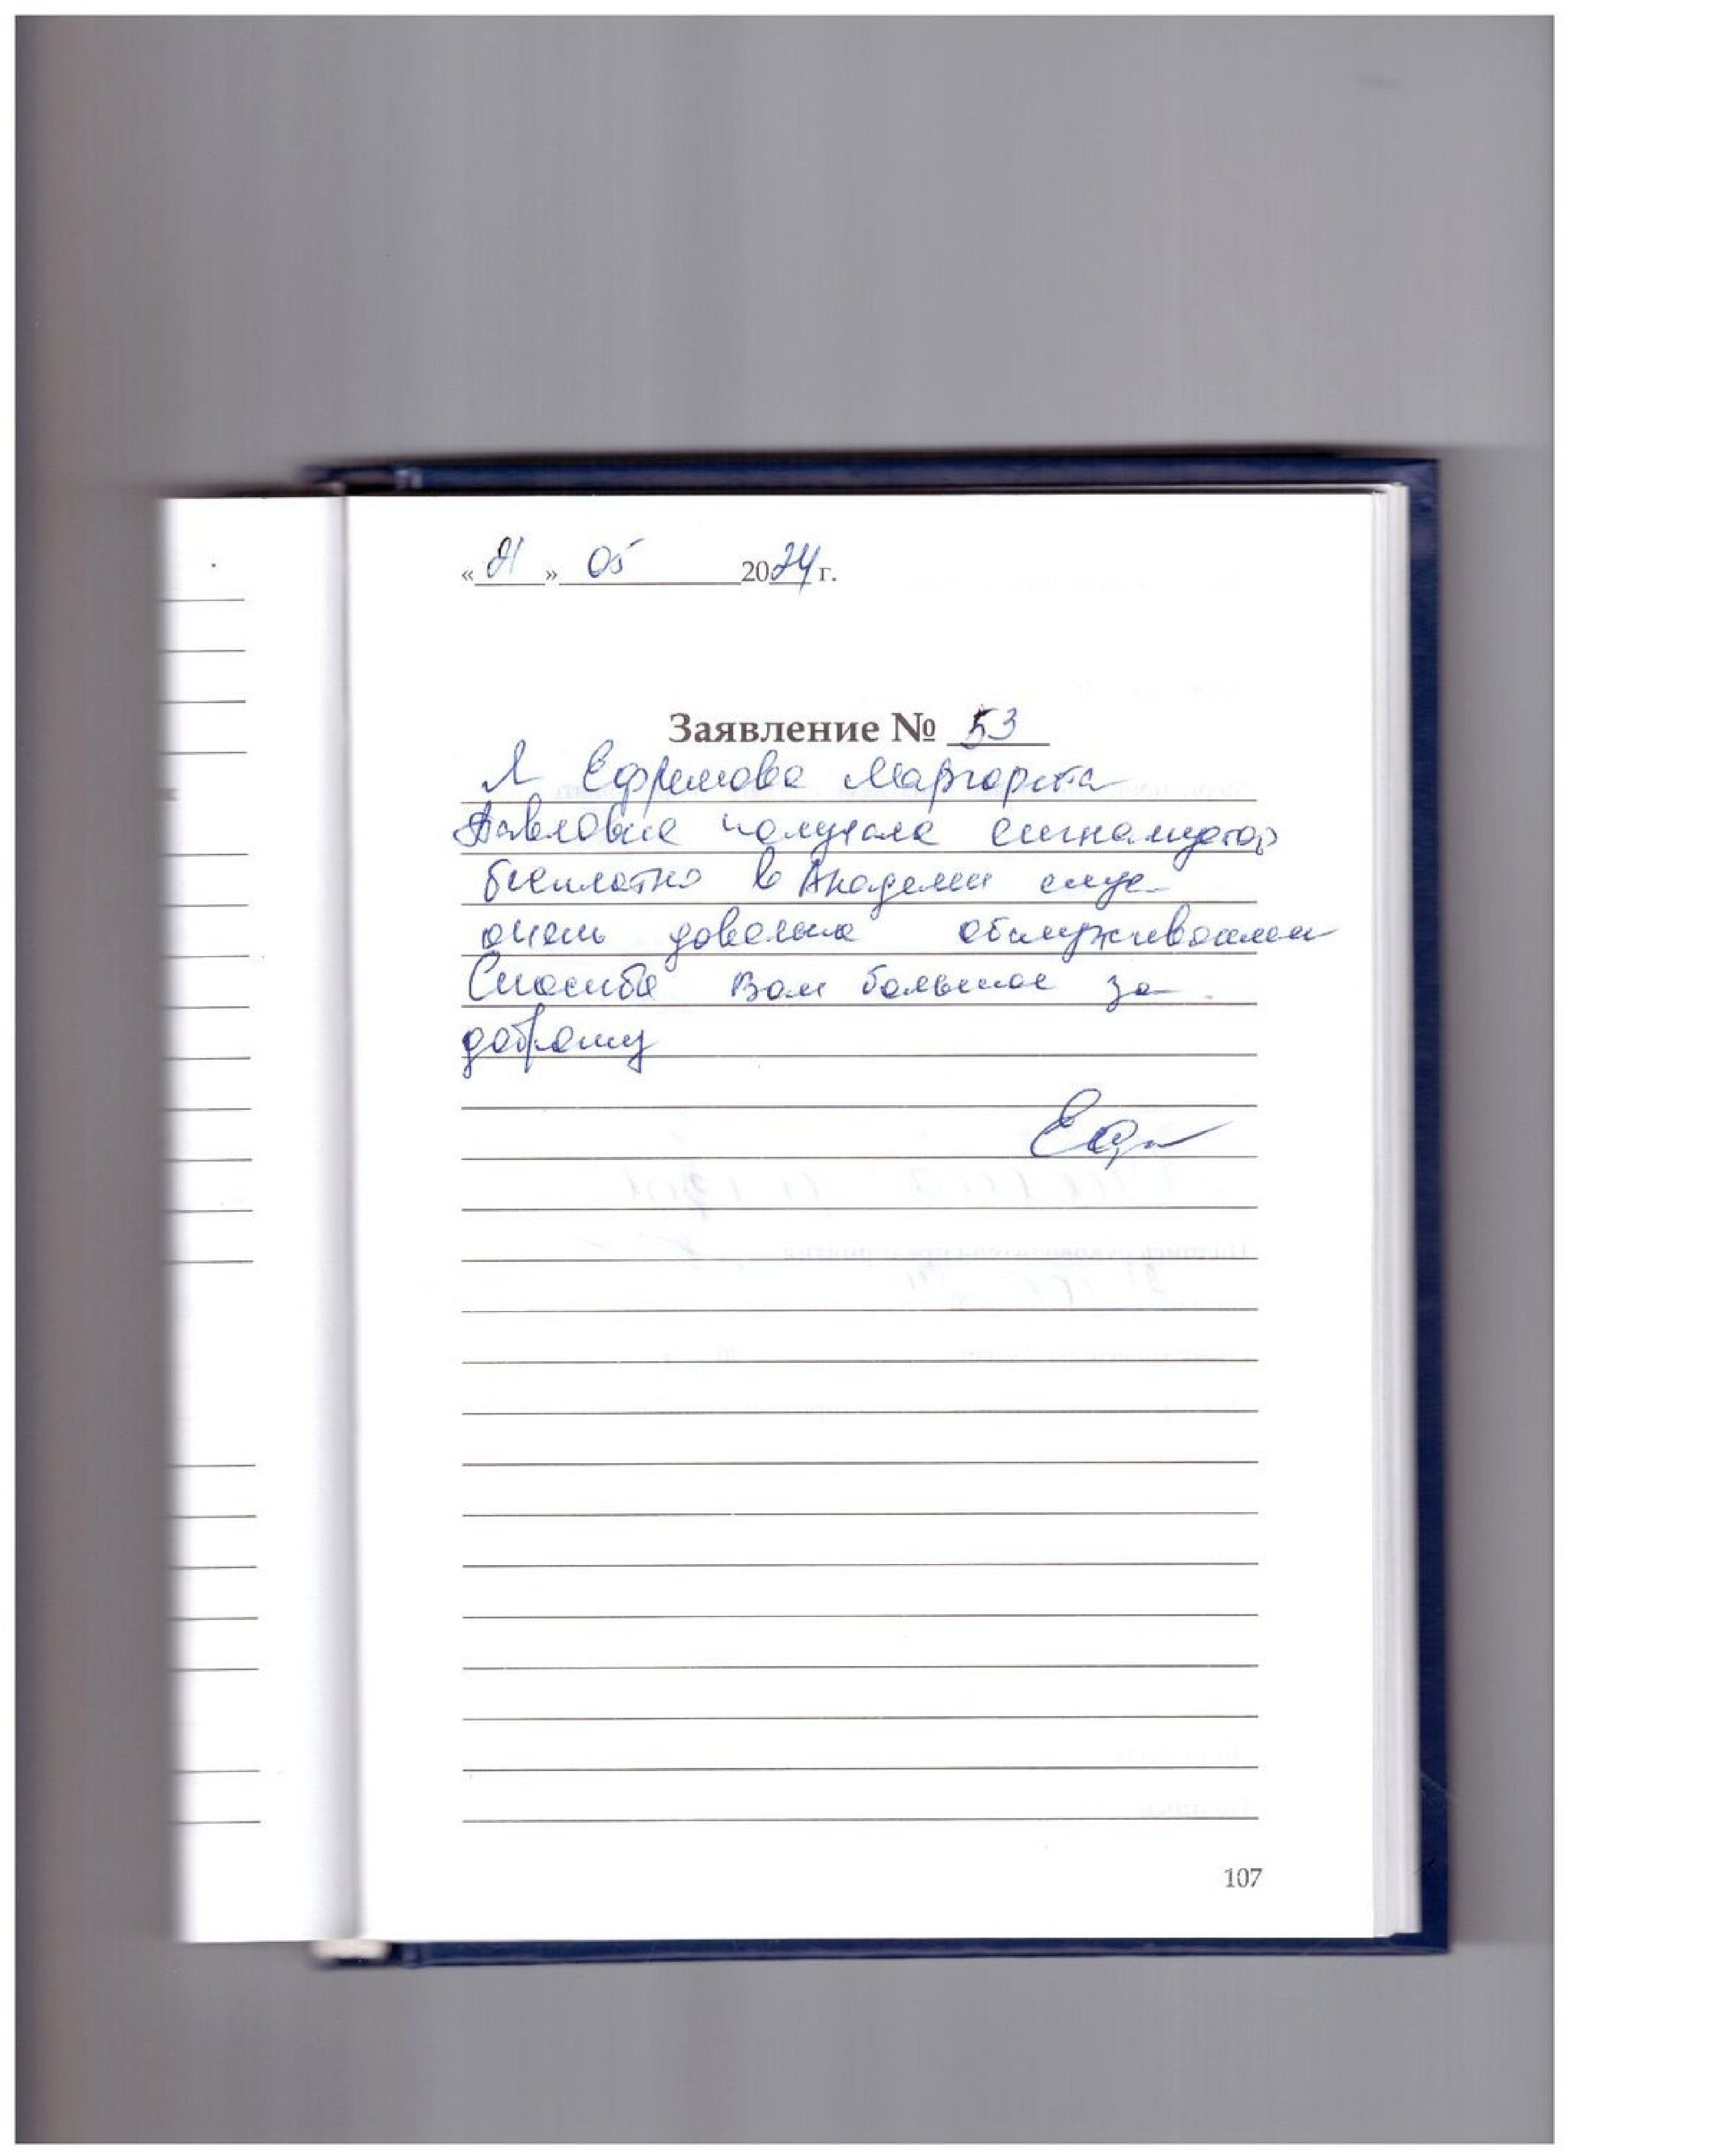 «21» 05 2024 г.
Заявление № 53
Я Ефремова Маргорита
Павловна получала сигнализатор
бесплатно в Академии слуха
очень довольна обслуживанием
Спосибо Вам большое за
доброту
Ефр
107